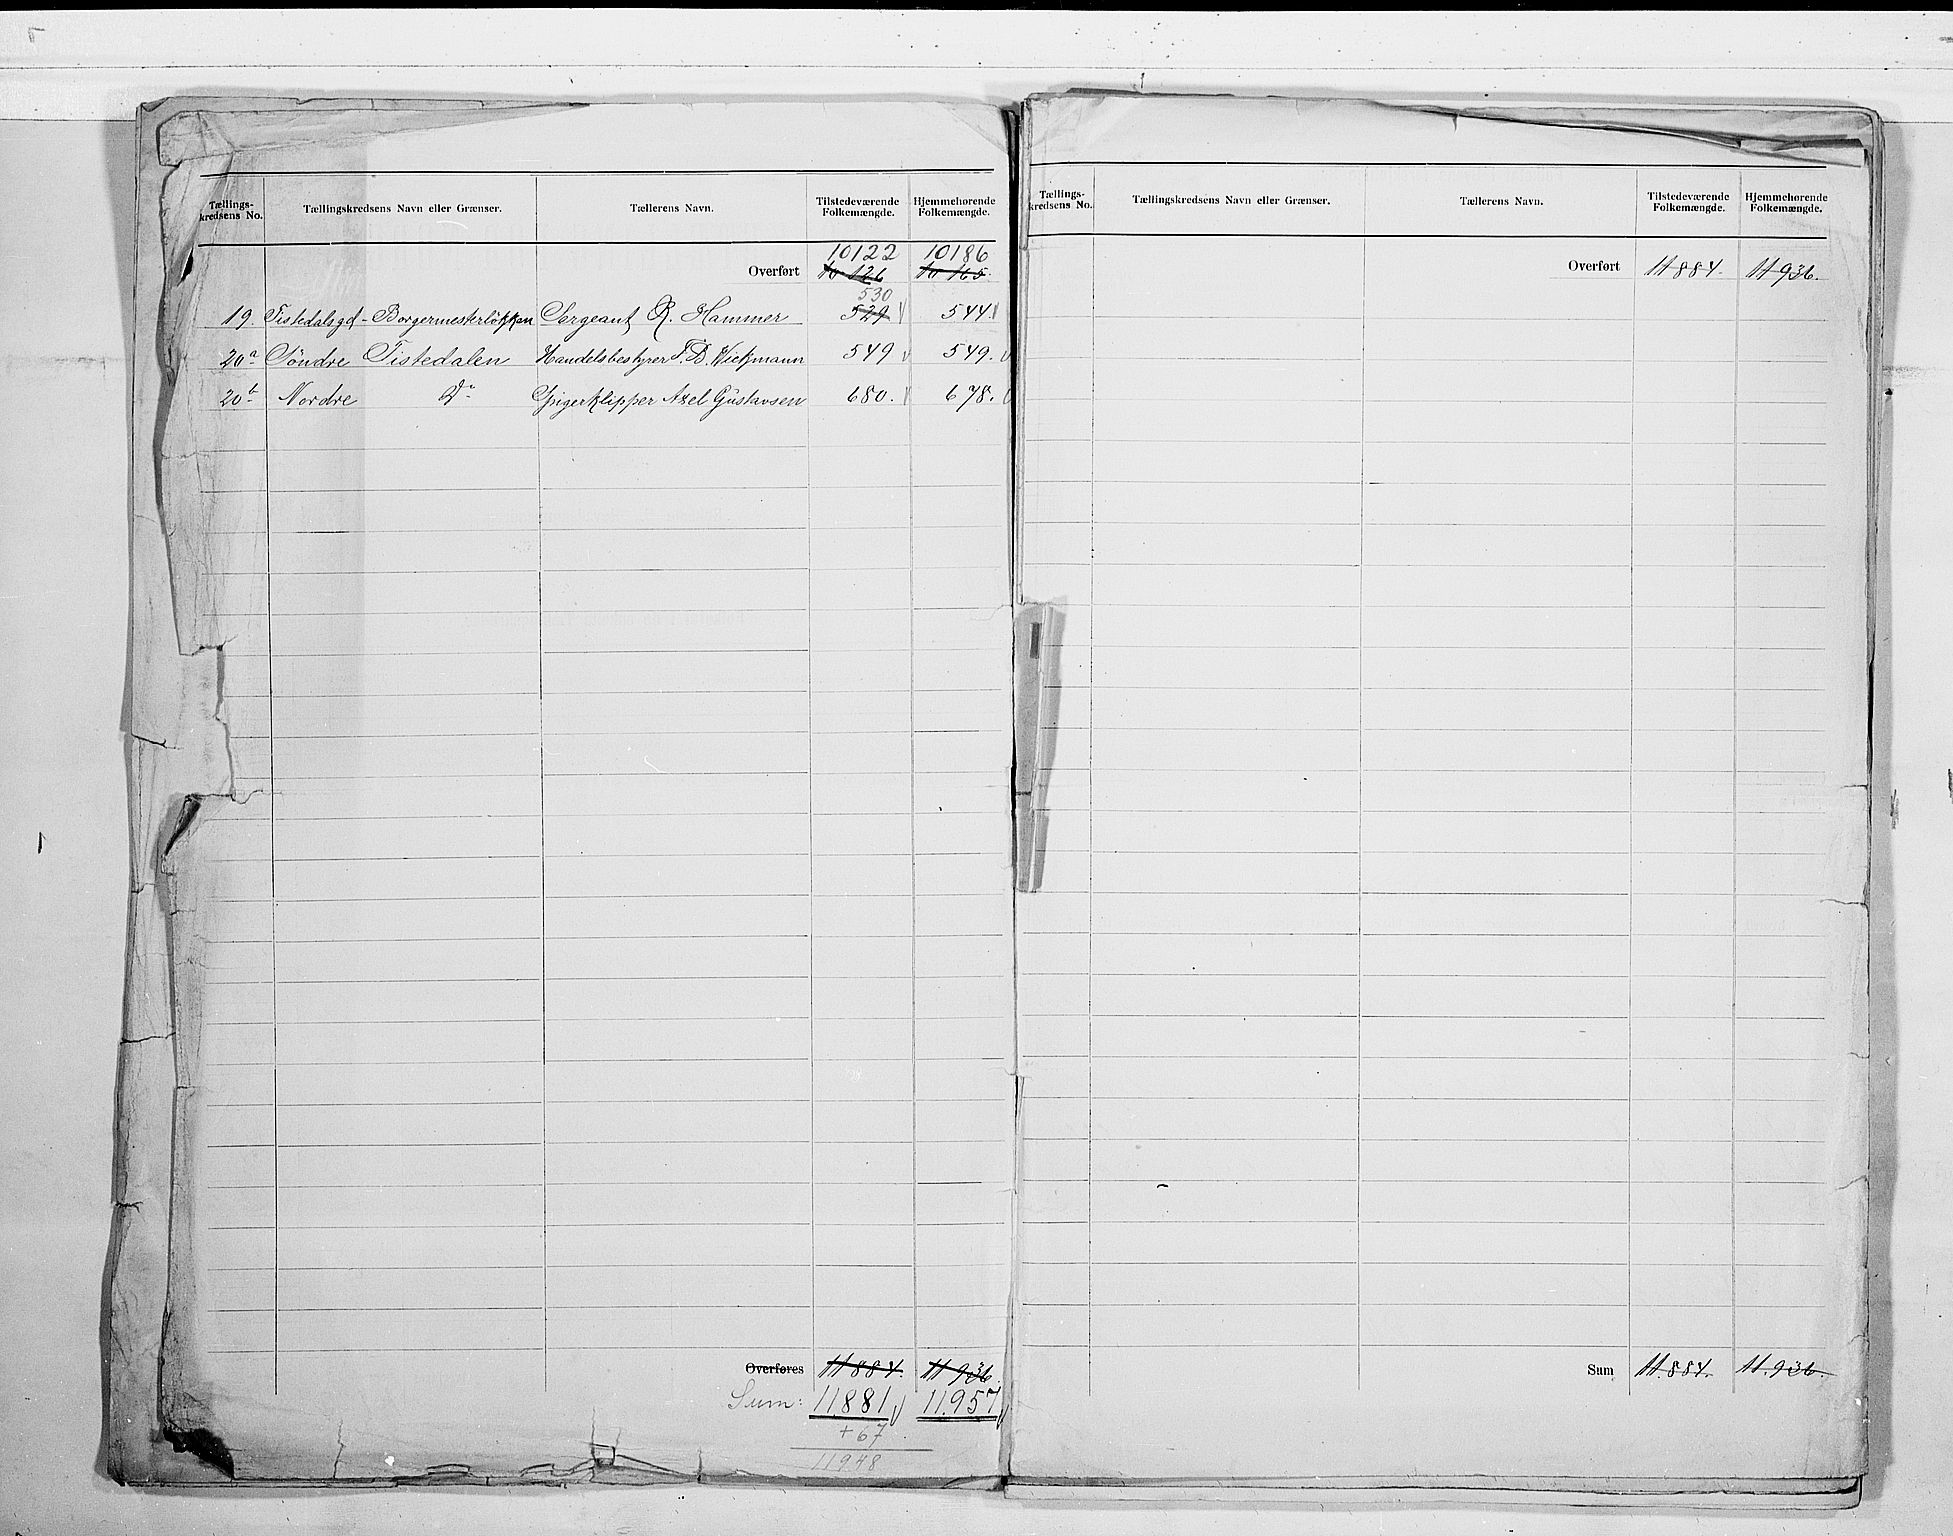 Tællings-kredsens No. Tællingskredsens Navn eller Grænser. Tællerens Navn. Tilstedeværende Folkemængde. Hjemmehørende Folkemængde.
10122 10186
Overført 10 126 10 165.
530
19. Tistedalsgd - Borgermesterløkken Sergeant R. Hammer 529 544.
20a Söndre Tistedalen Handelsbestyrer F. B. Wickmann 549 549.
20b Nordre Do Spigerklipper Axel Gustavsen 680. 678.
Overføres 11 884. 11 936.
Sum: 11881 11.957
+67
11948
Tællings-kredsens No. Tællingskredsens Navn eller Grænser. Tællerens Navn. Tilstedeværende Folkemængde. Hjemmehørende Folkemængde.
Overført 11 884. 11 936.
Sum 11.884. 11.936.